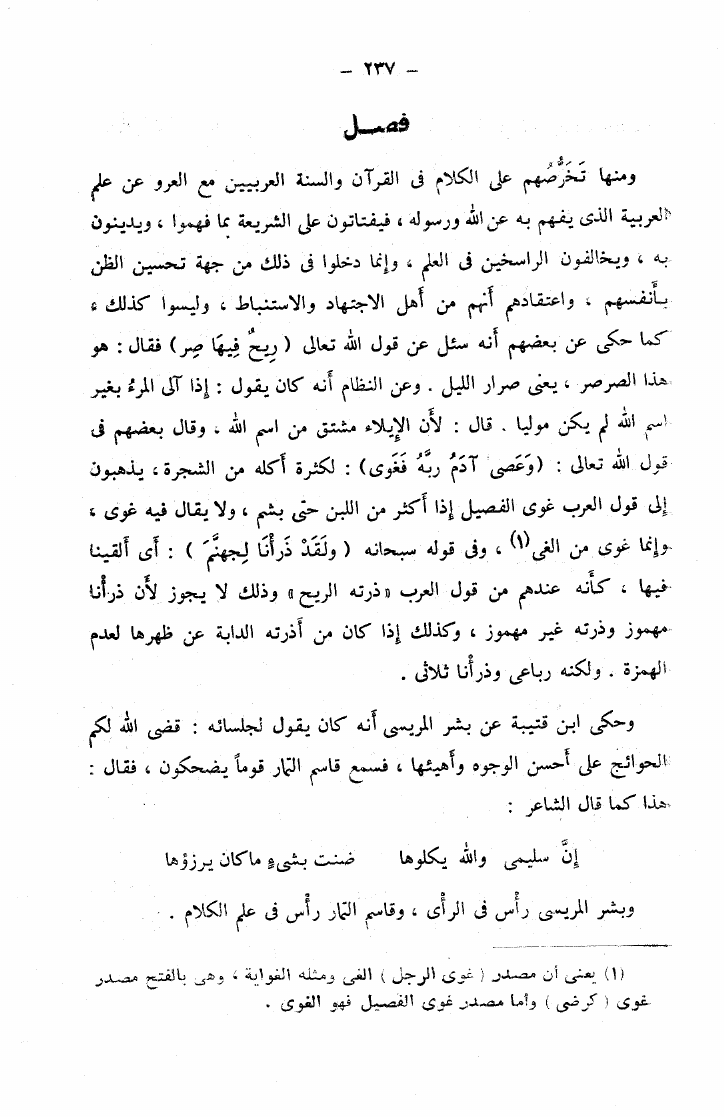 — ٢٣٧ —
فصـــل
ومنها تَخَرُّصُهم على الكلام فى القرآن والسنة العربيين مع العرو عن علم
العربية الذى يفهم به عن الله ورسوله ، فيفتاتون على الشريعة بما فهموا ، ويدينون
به ، ويخالفون الراسخين فى العلم ، وإنما دخلوا فى ذلك من جهة تحسين الظن
بأنفسهم ، واعتقادهم أنهم من أهل الاجتهاد والاستنباط ، وليسوا كذلك ء
كما حكى عن بعضهم أنه سئل عن قول الله تعالى ( رِيحٌ فِيهَا صِر ) فقال : هو
هذا الصرصر ، يعنى صرار الليل . وعن النظام أنه كان يقول : إذا آلى المرءُ بغير
اسم الله لم يكن موليا . قال : لأن الإيلاء مشتق من اسم الله ، وقال بعضهم فى
قول الله تعالى : ( وَعَصى آدَمُ ربَّهُ فَغَوى ) : لكثرة أكله من الشجرة ، يذهبون
إلى قول العرب غوى الفصيل إذا أكثر من اللبن حتى بشم ، ولا يقال فيه غوى ،
وإنما غوى من الغى (١) ، وفى قوله سبحانه ( ولَقَدْ ذَرأْنَا لِجهنَّمَ ) : أى ألقينا
فيها ، كأنه عندهم من قول العرب « ذرته الريح » وذلك لا يجوز لأن ذرأنا
مهموز وذرته غير مهموز ، وكذلك إذا كان من أذرته الدابة عن ظهرها لعدم
الهمزة . ولكنه رباعى وذرأنا ثلاثى .
وحكى ابن قتيبة عن بشر المريسى أنه كان يقول لجلسائه : قضى الله لكم
الحوائج على أحسن الوجوه وأهيئها ، فسمع قاسم التمار قوماً يضحكون ، فقال :
هذا كما قال الشاعر :
إنَّ سليمى والله يكلوها ضنت بشىءٍ ماكان يرزؤها
وبشر المريسى رأْس فى الرأى ، وقاسم التمار رأْس فى علم الكلام .
(١) يعنى أن مصدر ( غوى الرجل ) الغى ومثله الغواية ، وهى بالفتح مصدر
غوى ( كرضى ) وأما مصدر غوى الفصيل فهو الغوى .